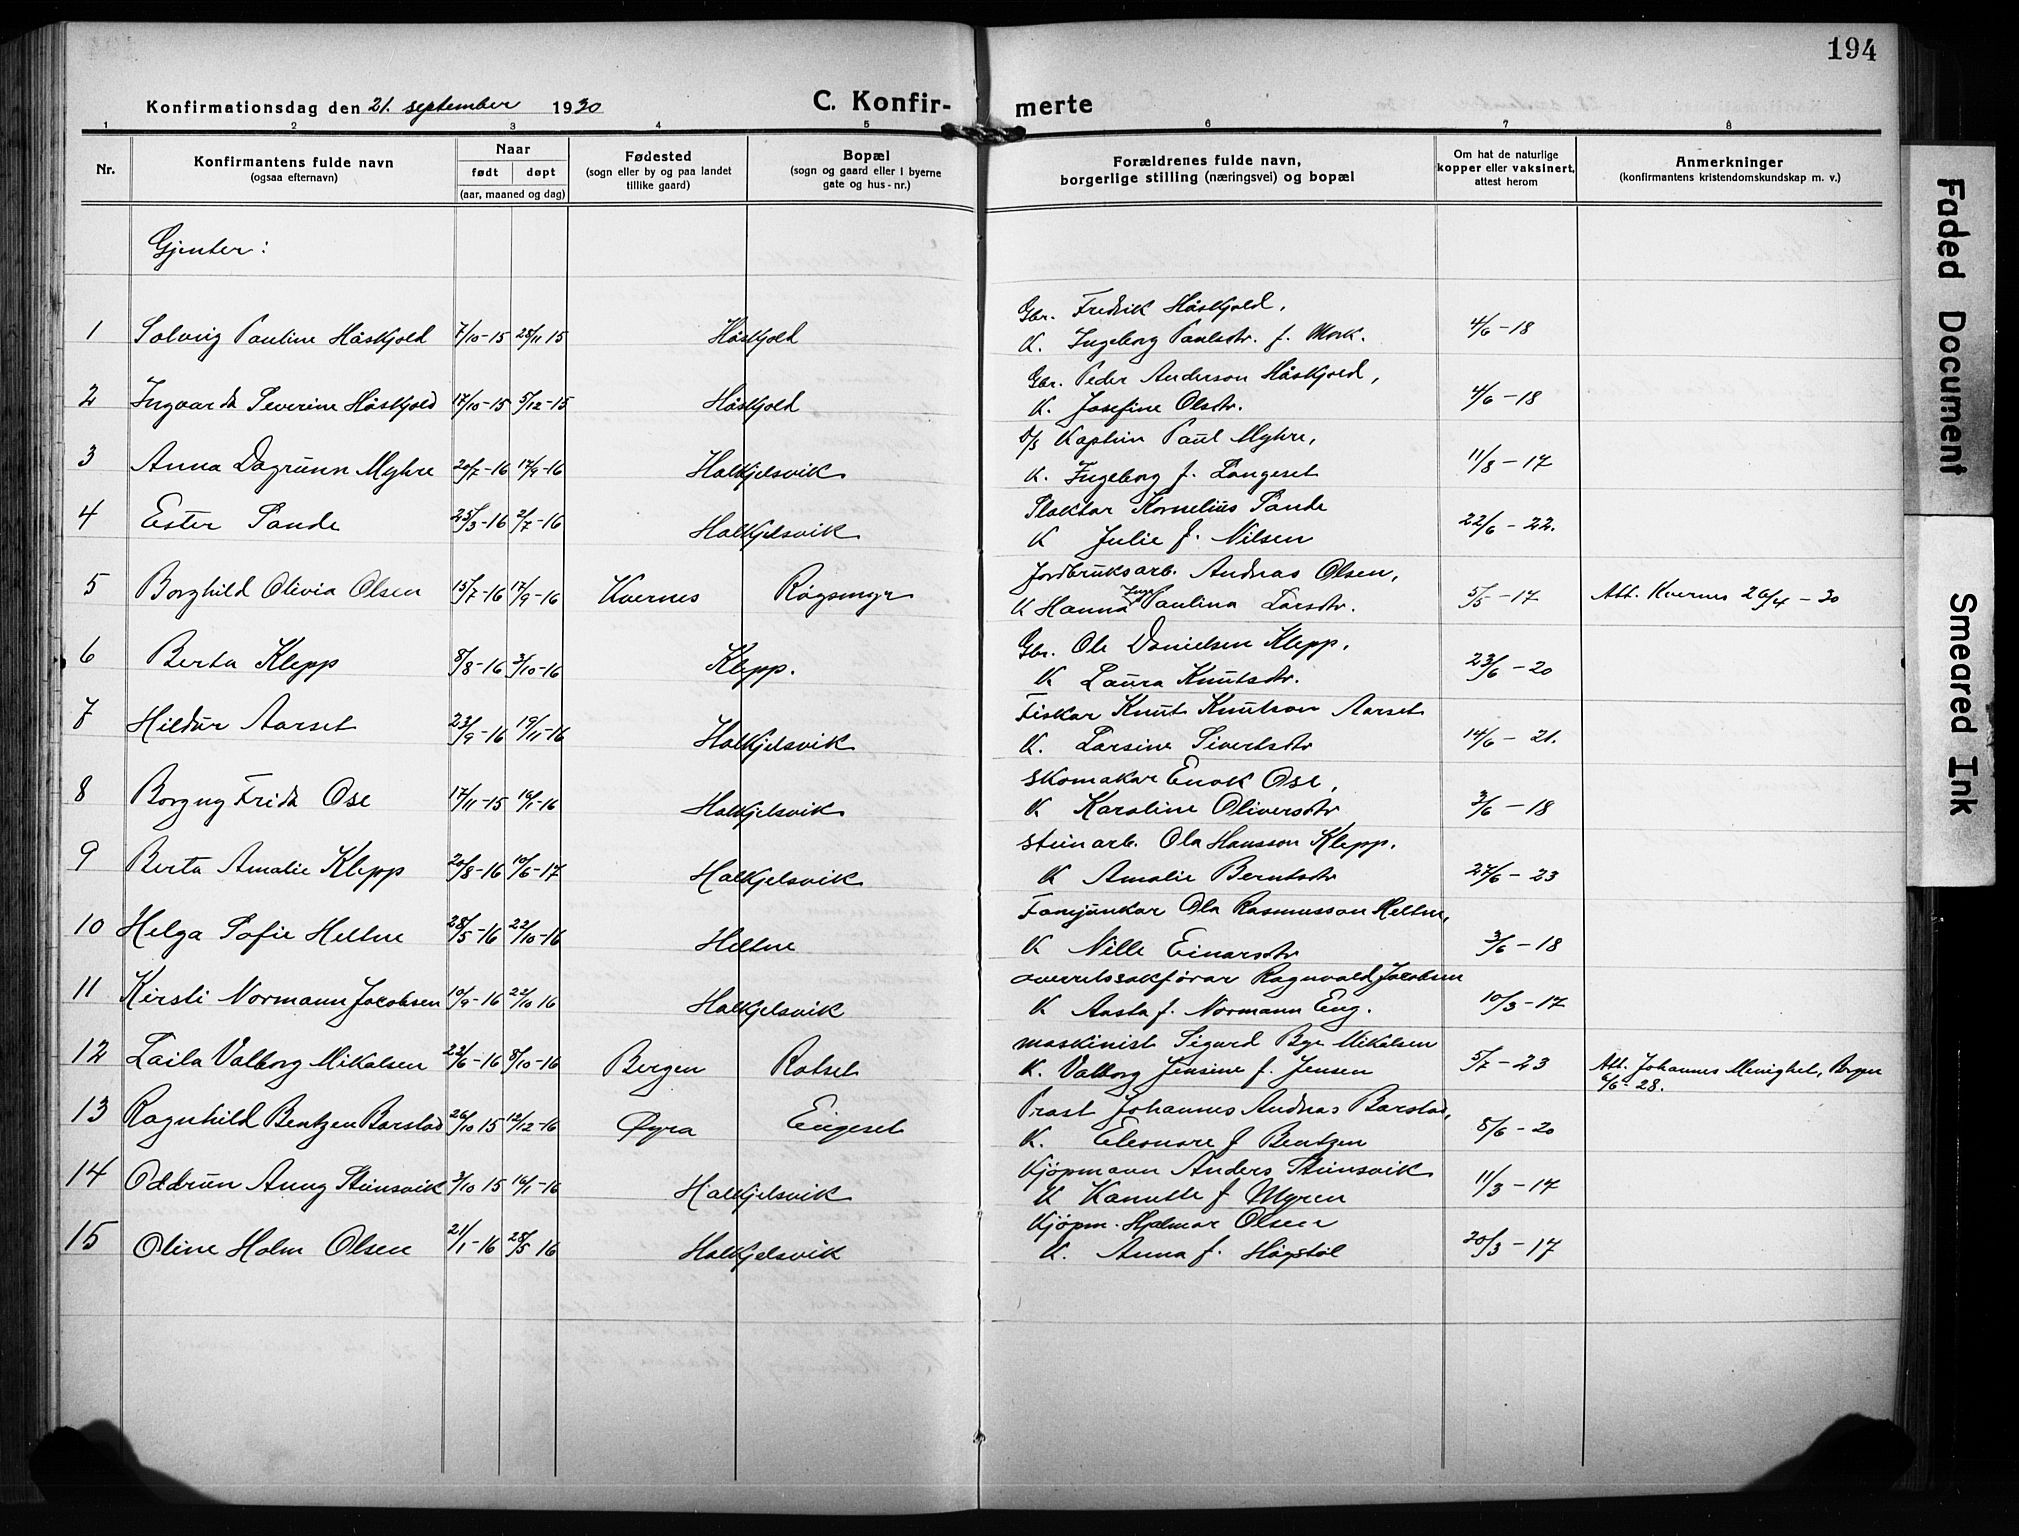 194
Konfirmationsdag den 21. september 1930 C. Konfir- merte
1 2 3 4 5 6 7 8
Nr. Konfirmantens fulde navn (ogsaa efternavn) Naar født døpt (aar, maaned og dag) Fødested (sogn eller by og paa landet tillike gaard) Bopæl (sogn og gaard eller i byerne gate og hus-nr.) Forældrenes fulde navn, borgerlige stilling (næringsvei) og bopæl Om hat de naturlige kopper eller vaksinert, attest herom Anmerkninger (konfirmantens kristendomskundskap m. v.)
Gjenter:
Gbr. Fredrik Håskjold,
1 Solveig Pauline Håskjold 7/10-15 28/11 15 Håskjold K. Ingeborg Paulsdtr. f. Mork. 4/6-18
Gbr. Peder Anderson Håskjold,
2 Ingvarda Severine Håskjold 17/10-15 5/12-15 Håskjold K. Josefine Olsdtr. 4/6-18
D/S Kaptein Paul Myhre,
3 Anna Dagrunn Myhre 20/7-16 17/9-16 Halkjelsvik K. Ingeborg f. Langeset 11/8-17
Slaktar Kornelius Sande
4 Ester Sande 25/3-16 2/7-16 Halkjelsvik K Julie f. Nilsen 22/6-22.
Jordbruksarb. Andreas Olsen,
5 Borghild Olivia Olsen 15/7-16 17/9-16 Kvernes Røgsmyr K Hanna Inga Paulina Larsdtr. 5/5-17 Att. Kvernes 26/4-30
Gbr. Ole Danielsen Klepp,
6 Berta Klepp 8/8-16 3/10-16 Klepp. K Laura Knutsdtr. 23/6-20
Fiskar Knut Knutson Aarset
7 Hildur Aarset 23/9-16 19/11-16 Halkjelsvik K. Larsine Sivertsdtr 14/6-21.
skomakar Enok Ose,
8 Borgny Frida Ose 17/11-15 16/1-16 Halkjelsvik K Karoline Oliversdtr 3/6-18
steinarb. Ola Hansson Klepp.
9 Berta Amalie Klepp 20/8-16 10/6-17 Halkjelsvik K Amalie Berntsdtr 27/6-23
Fanejunkar Ola Rasmusson Heltne,
10 Helga Sofie Heltne 28/5-16 22/10-16 Heltne K Nille Einarsdtr 3/6-18
overretssakførar Ragnvald Jacobsen
11 Kirsti Normann Jacobsen 10/9-16 22/10 16 Halkjelsvik K Aasta f. Normann Eng. 10/3-17
maskinist Sigurd Bye Mikalsen
12 Laila Valborg Mikalsen 22/6-16 8/10-16 Bergen Rotset K. Valborg Jensine f. Jensen 5/7-23 Att. Johannes Menighet, Bergen 6/6-28.
Prost Johannes Andreas Barstad,
13 Ragnhild Bentzen Barstad 26/10 15 12/12-16 Øyra Eingeset K. Eleonore f Bentzen 8/6-20
Kjøpmann Anders Steinsvik
14 Oddrun Anny Steinsvik 3/10 15 16/1-16 Halkjelsvik K Kanutte f Myren 11/3-17
Kjøpm. Hjalmar Olsen
15 Oline Holm Olsen 21/1-16 28/5 16 Halkjelsvik K. Anna f. Høgstøl 20/3-17
Faded Document
Smeared Ink